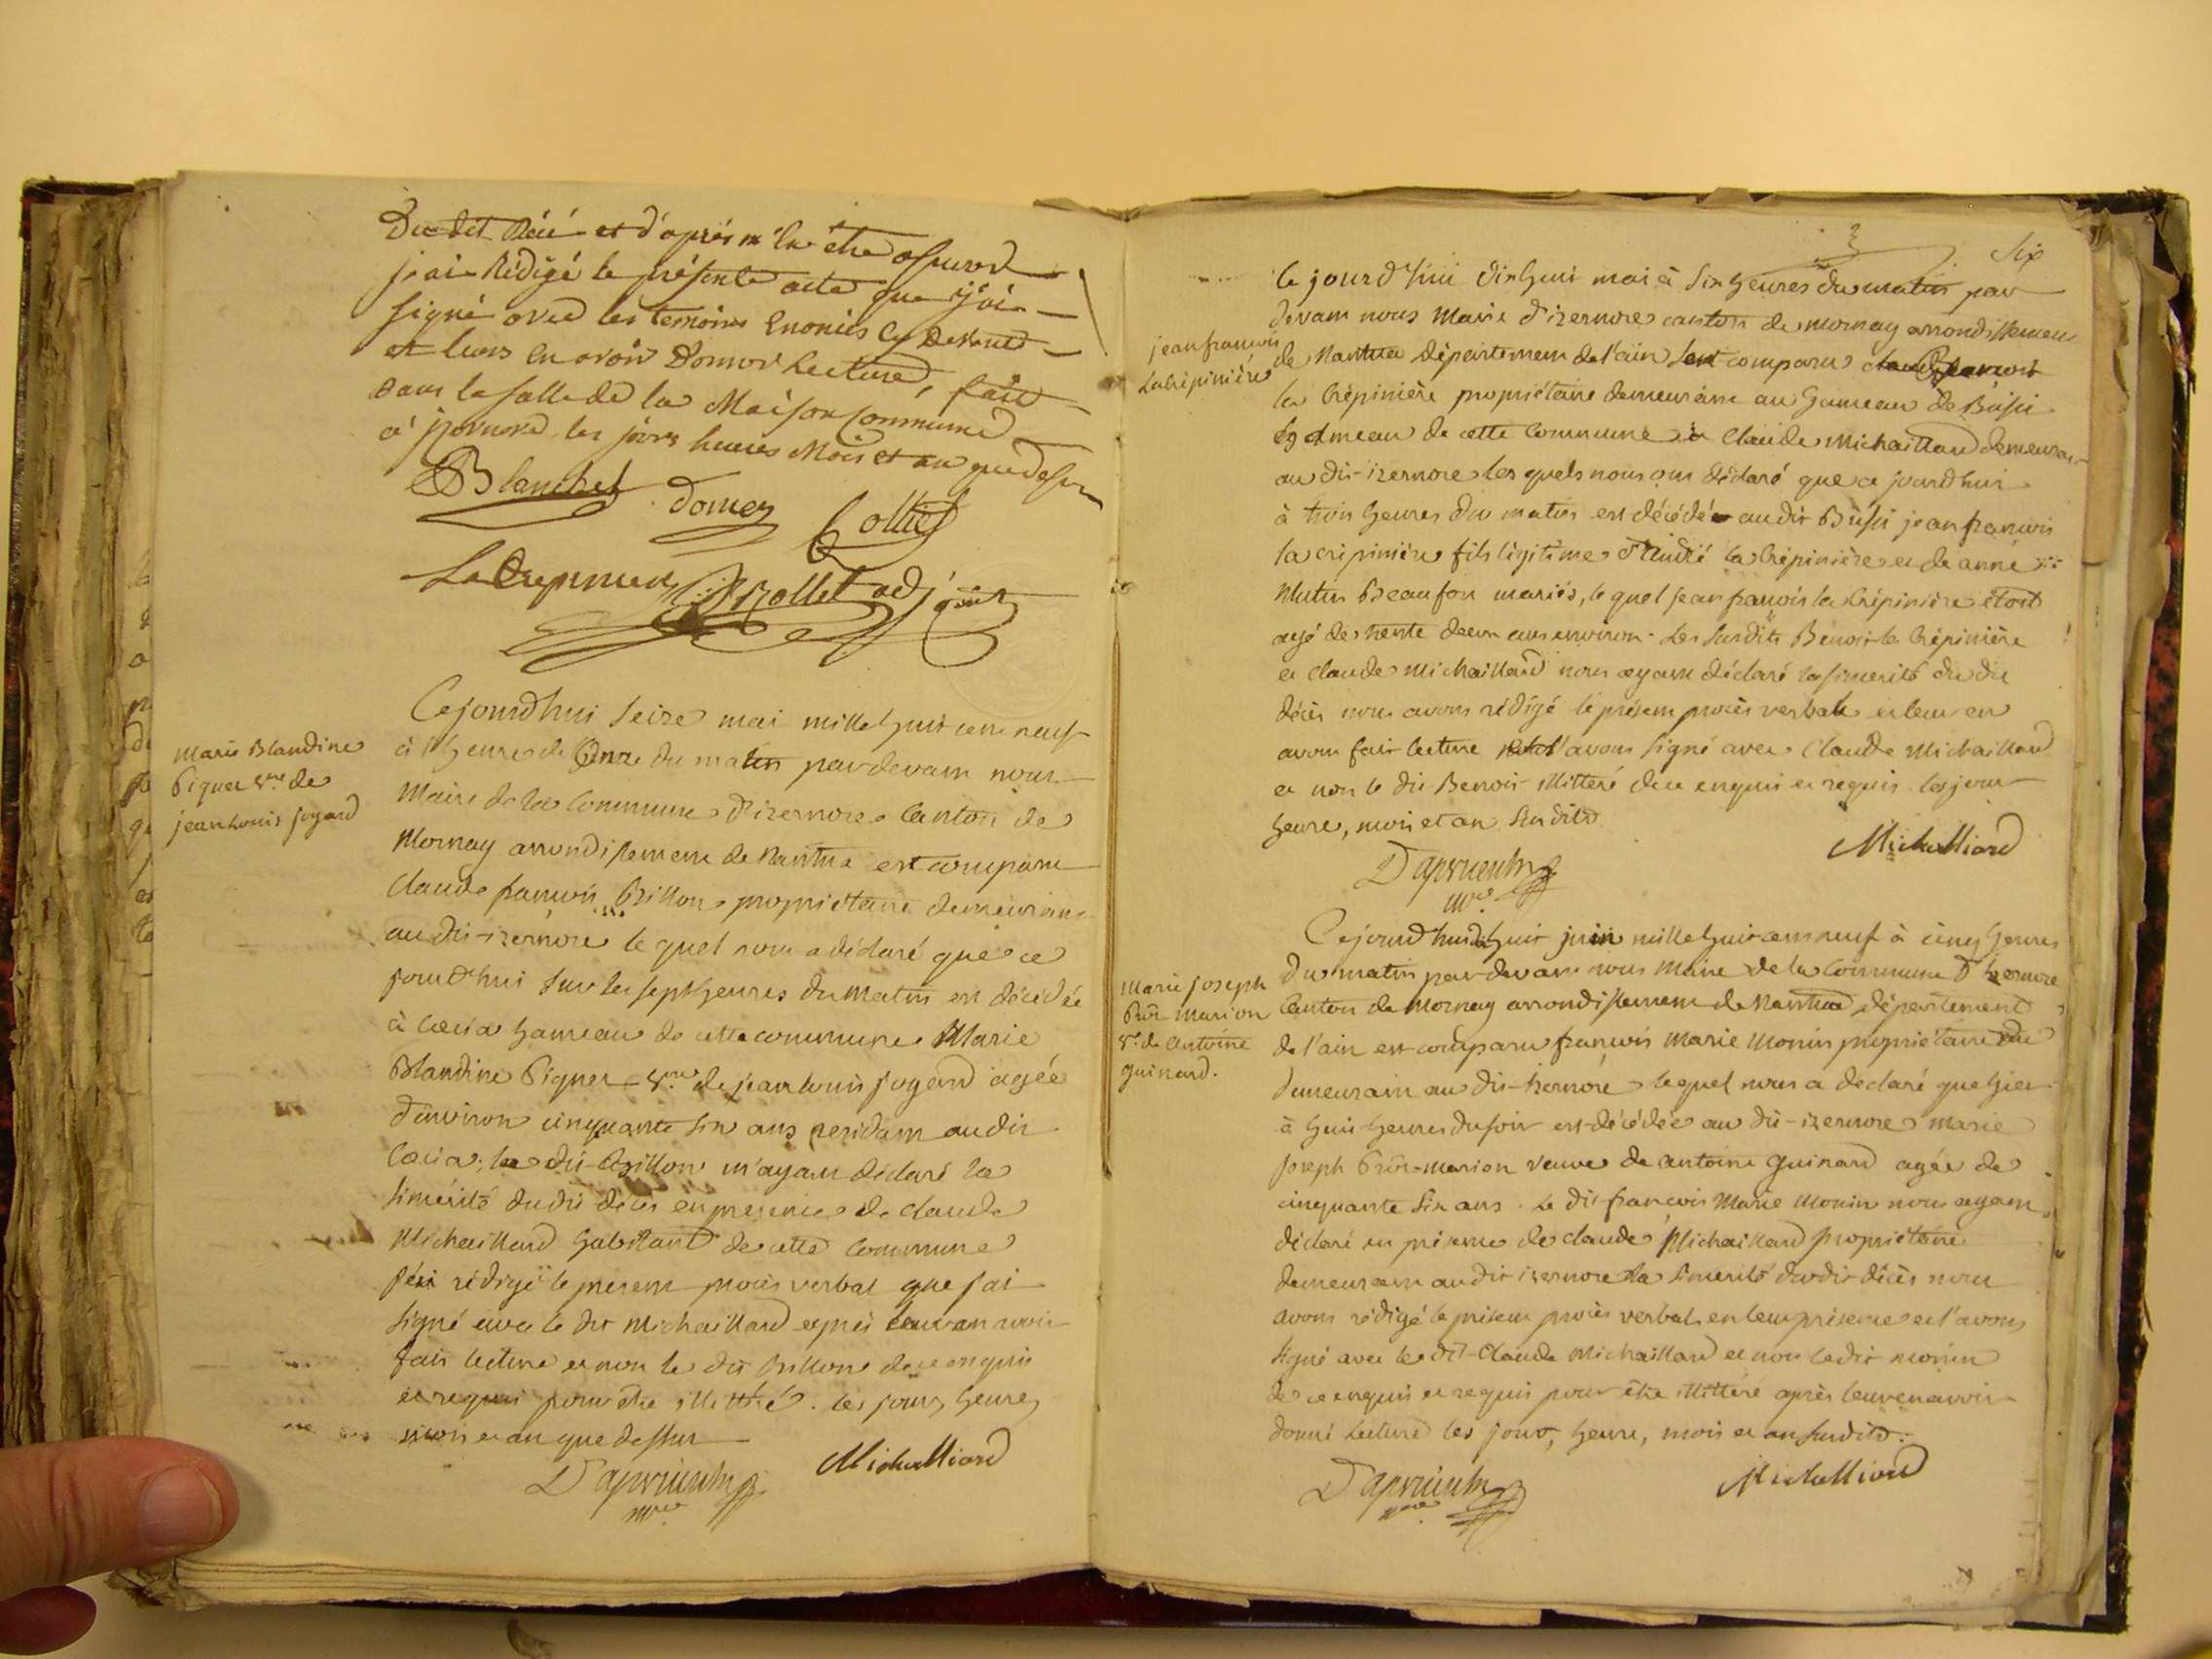 Du dit Décé et d'après m'en être assuré
j'ai Rédigé le présente acte que j'ai
signé avec les temoins Enonés cy Devant
et leurs en avoir Donner Lecture, fait
dans la salle de la Maison Commune
à jzernore les jours heures Mois et an que dessu
Blanchet Domez Collet
LaCrepiniere Rollet adjoint
Marie Blandine
Piquet Vve de
jean Louis jogard
Cejourdhui seize mai mille huit cent neuf
à l'heure de onze du matin pardevant nous
Maire de la Commune d'izernore Canton de
Mornay arrondissement de Nantua est comparu
Claude françois Brillon propriétaire demeurant
au dit izernore le quel nous a déclaré que ce
jourd'hui sur les sept heures du matin est décédée
à Ceciat hameau de cette commune Marie
Blandine Piquet Vve de jean Louis jogard agée
d'environ cinquante six ans residant au dit
Ceciat, le dit Brillon m'ayant déclaré la
sincérité du dit décès en presence de Claude
Michaillard habitant de cette Commune
j'ai rédigé le present procès verbal que j'ai
signé avec le dit Michaillard après leur en avoir
fait lecture et non le dit Brillon de ce enquis
et requis pour être illittéré. les jour, heure,
mois et an que dessus
Dapvrieulx Michalliard
mre
Six
jean francois
Lacrépinière
Ce jourd'hui dix huit mai à six heures du matin par
devant nous Maire d'izernore canton de Mornay arrondissement
de Nantua département de l'ain sont comparu
la Crépinière propriétaire demeurant au hameau de Bussi
hameau de cette Commune et Claude Michaillard demeurant
au dit izernore les quels nous ont déclaré que ce jourdhui
à trois heures du matin est décédé au dit Bussi jean francois
la crépinière fils légitime d'André la Crépinière et de anne
Mutin Beaufort mariés, le quel jean françois la Crépinière étoit
agé de trente deux ans environ. Les susdits Benoit la Crépinière
et Claude Michaillard nous ayant déclaré la sincérité du dit
décès nous avons rédigé le présent procès verbal et leur en
avons fait lecture et l'avons signé avec Claude Michaillard
et non le dit Benoit illittéré de ce enquis et requis les jour
heure, mois et an susdits
Dapvrieulx Michalliard
mre
Marie joseph
Marion
Ve de Antoine
guinard.
Cejourdhui huit juin mille huit cens neuf à cinq heures
du matin pardevant nous Maire de la Commune d'Izernore
Canton de Mornay arrondissement de Nantua, département
de l'ain est comparu francois Marie Monin propriétaire
demeurant au dit izernore lequel nous a déclaré que hier
à huit heures du soir est décédée au dit izernore Marie
joseph Marion veuve de Antoine guinard agée de
cinquante six ans. Le dit francois Marie Monin nous ayant
déclaré en présence de Claude Michaillard propriétaire
demeurant au dit izernore la sincérité du dit décès nous
avons rédigé le présent procès verbal en leur présence et l'avons
signé avec le dit Claude Michaillard et non le dit Monin
de ce enquis et requis pour être illittéré après leur en avoir
donné Lecture les jour, heure, mois et an susdits.
Dapvrieulx Michalliard
mre